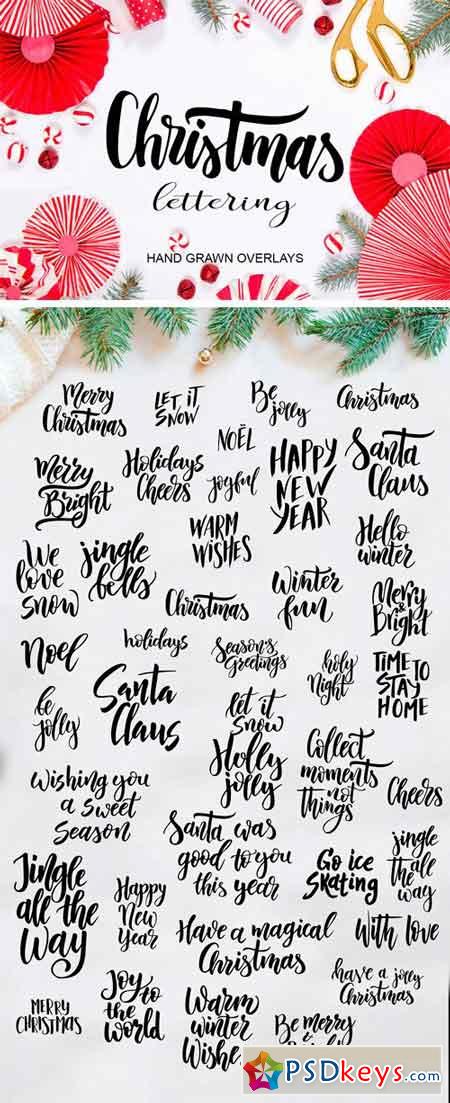 Christmas
lettering
HAND GRAWN OVERLAYS
Merry
Christmas
LET IT
SNOW
Be
jolly
Christmas
NOËL
Merry
Bright
Holidays
Cheers
joyful
HAPPY
NEW
YEAR
Santa
Claus
WARM
WISHES
Hello
winter
We
love
snow
jingle
bells
Christmas
Winter
fun
Merry
&
Bright
Noel
holidays
Season's
Greetings
holy
Night
TIME TO
STAY
HOME
be
jolly
Santa
Claus
let it
snow
Holly
jolly
Collect
moments
not
Things
Cheers
Wishing you
a sweet
Season
Santa was
good to you
this year
Go ice
Skating
jingle
all the
way
Jingle
all the
Way
Happy
New
Year
Have a magical
Christmas
With love
MERRY
CHRISTMAS
Joy to
the
world
Warm
winter
Wishe
have a jolly
Christmas
Be merry
&
PSDkeys.com